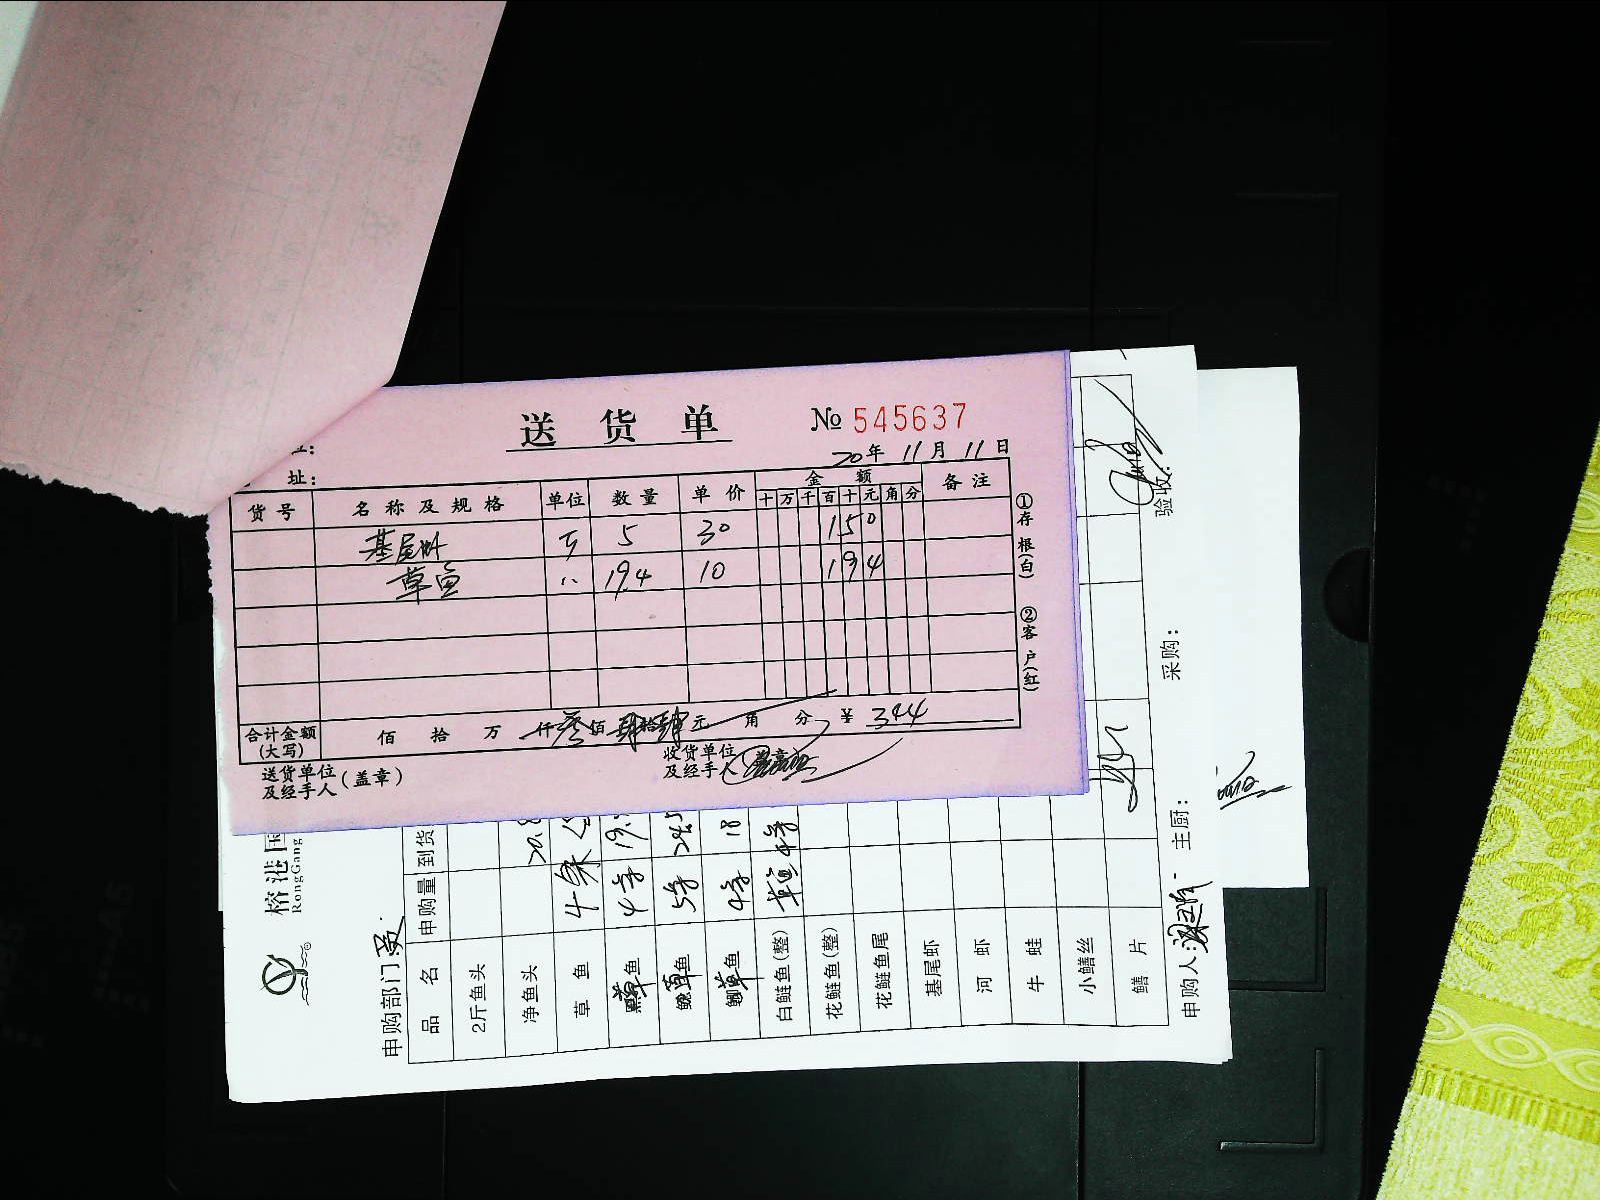 送货单 № 545637
20年 11月 11日
址：
货号 名称及规格 单位 数量 单价 金额 备注
十 万 千 百 十 元 角 分
基尾虾 斤 5 30 150
草鱼 〃 19.4 10 194
合计金额(大写) 佰 拾 万 仟 叁佰 肆拾肆元 角 分 ¥ 344
送货单位及经手人(盖章)
收货单位及经手人
①存根(白)
②客户(红)
榕港国
RongGang
申购部门
品名 申购量 到货
2斤鱼头
净鱼头 20.8
草鱼 4条
鱼 4条 19.
鱼 5条 24.5
鱼 4条 18
白鲢鱼(整) 草鱼 4条
花鲢鱼(整)
花鲢鱼尾
基尾虾
河虾
牛蛙
小鳝丝
鳝片
申购人：
主厨：
采购：
验收：